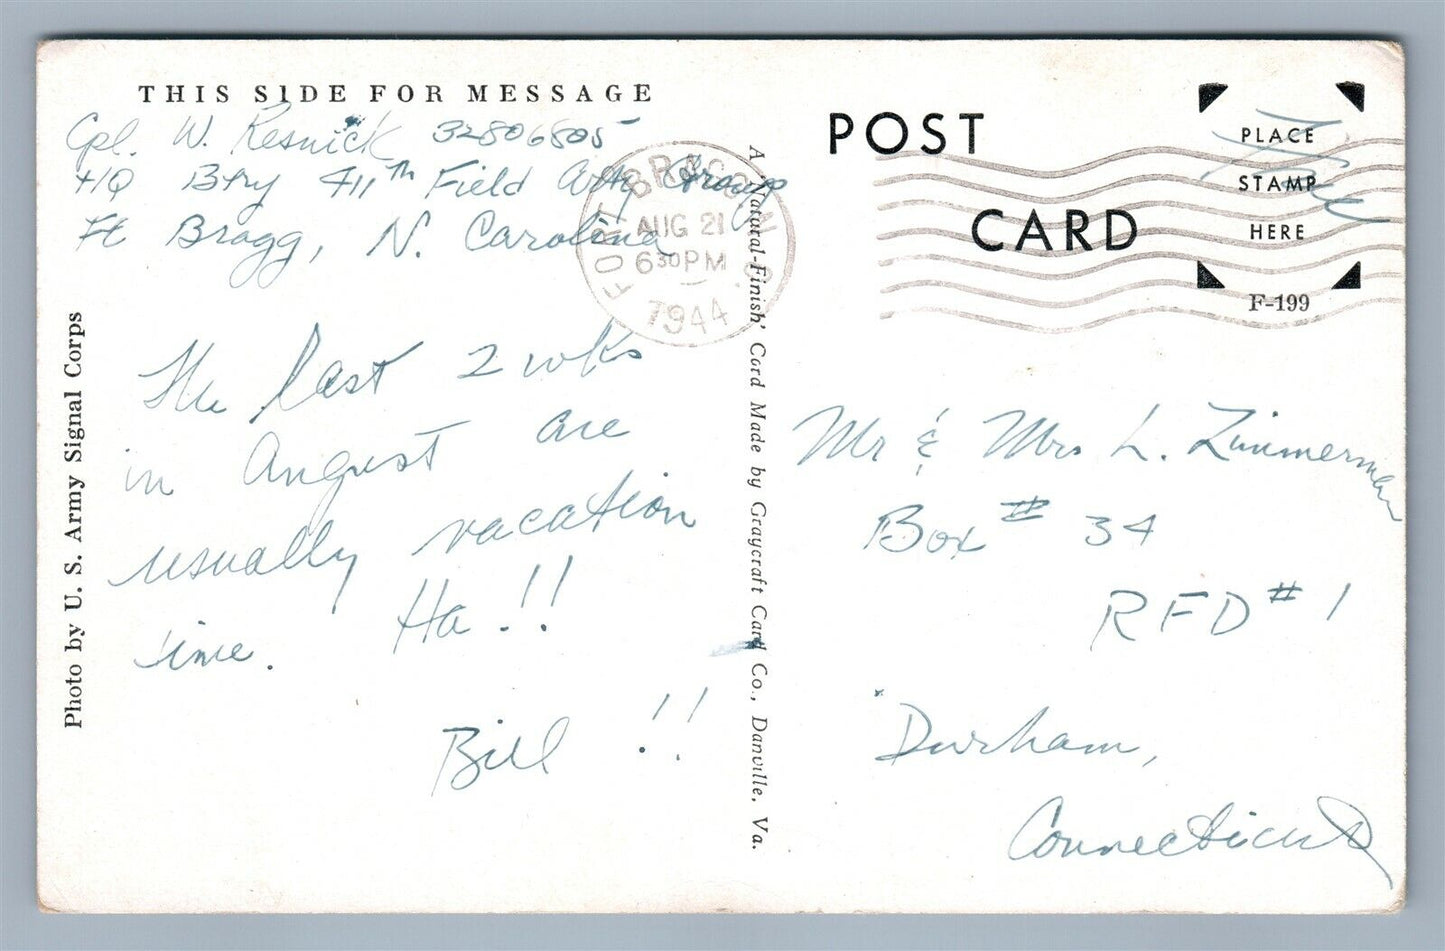 THIS SIDE FOR MESSAGE
Cpl. W. Resnick 32806805
HQ Btry 411th Field Arty Group
Ft Bragg, N. Carolina
FORT BRAGG N.C.
AUG 21
6 30 PM
1944
The last 2 wks
in August are
usually vacation
time. Ha!!
Bill!!
Photo by U. S. Army Signal Corps
A 'Natural-Finish' Card Made by Graycraft Card Co., Danville, Va.
POST
CARD
PLACE
STAMP
HERE
Free
F-199
Mr & Mrs L. Zimmerman
Box # 34
RFD # 1
Durham,
Connecticut